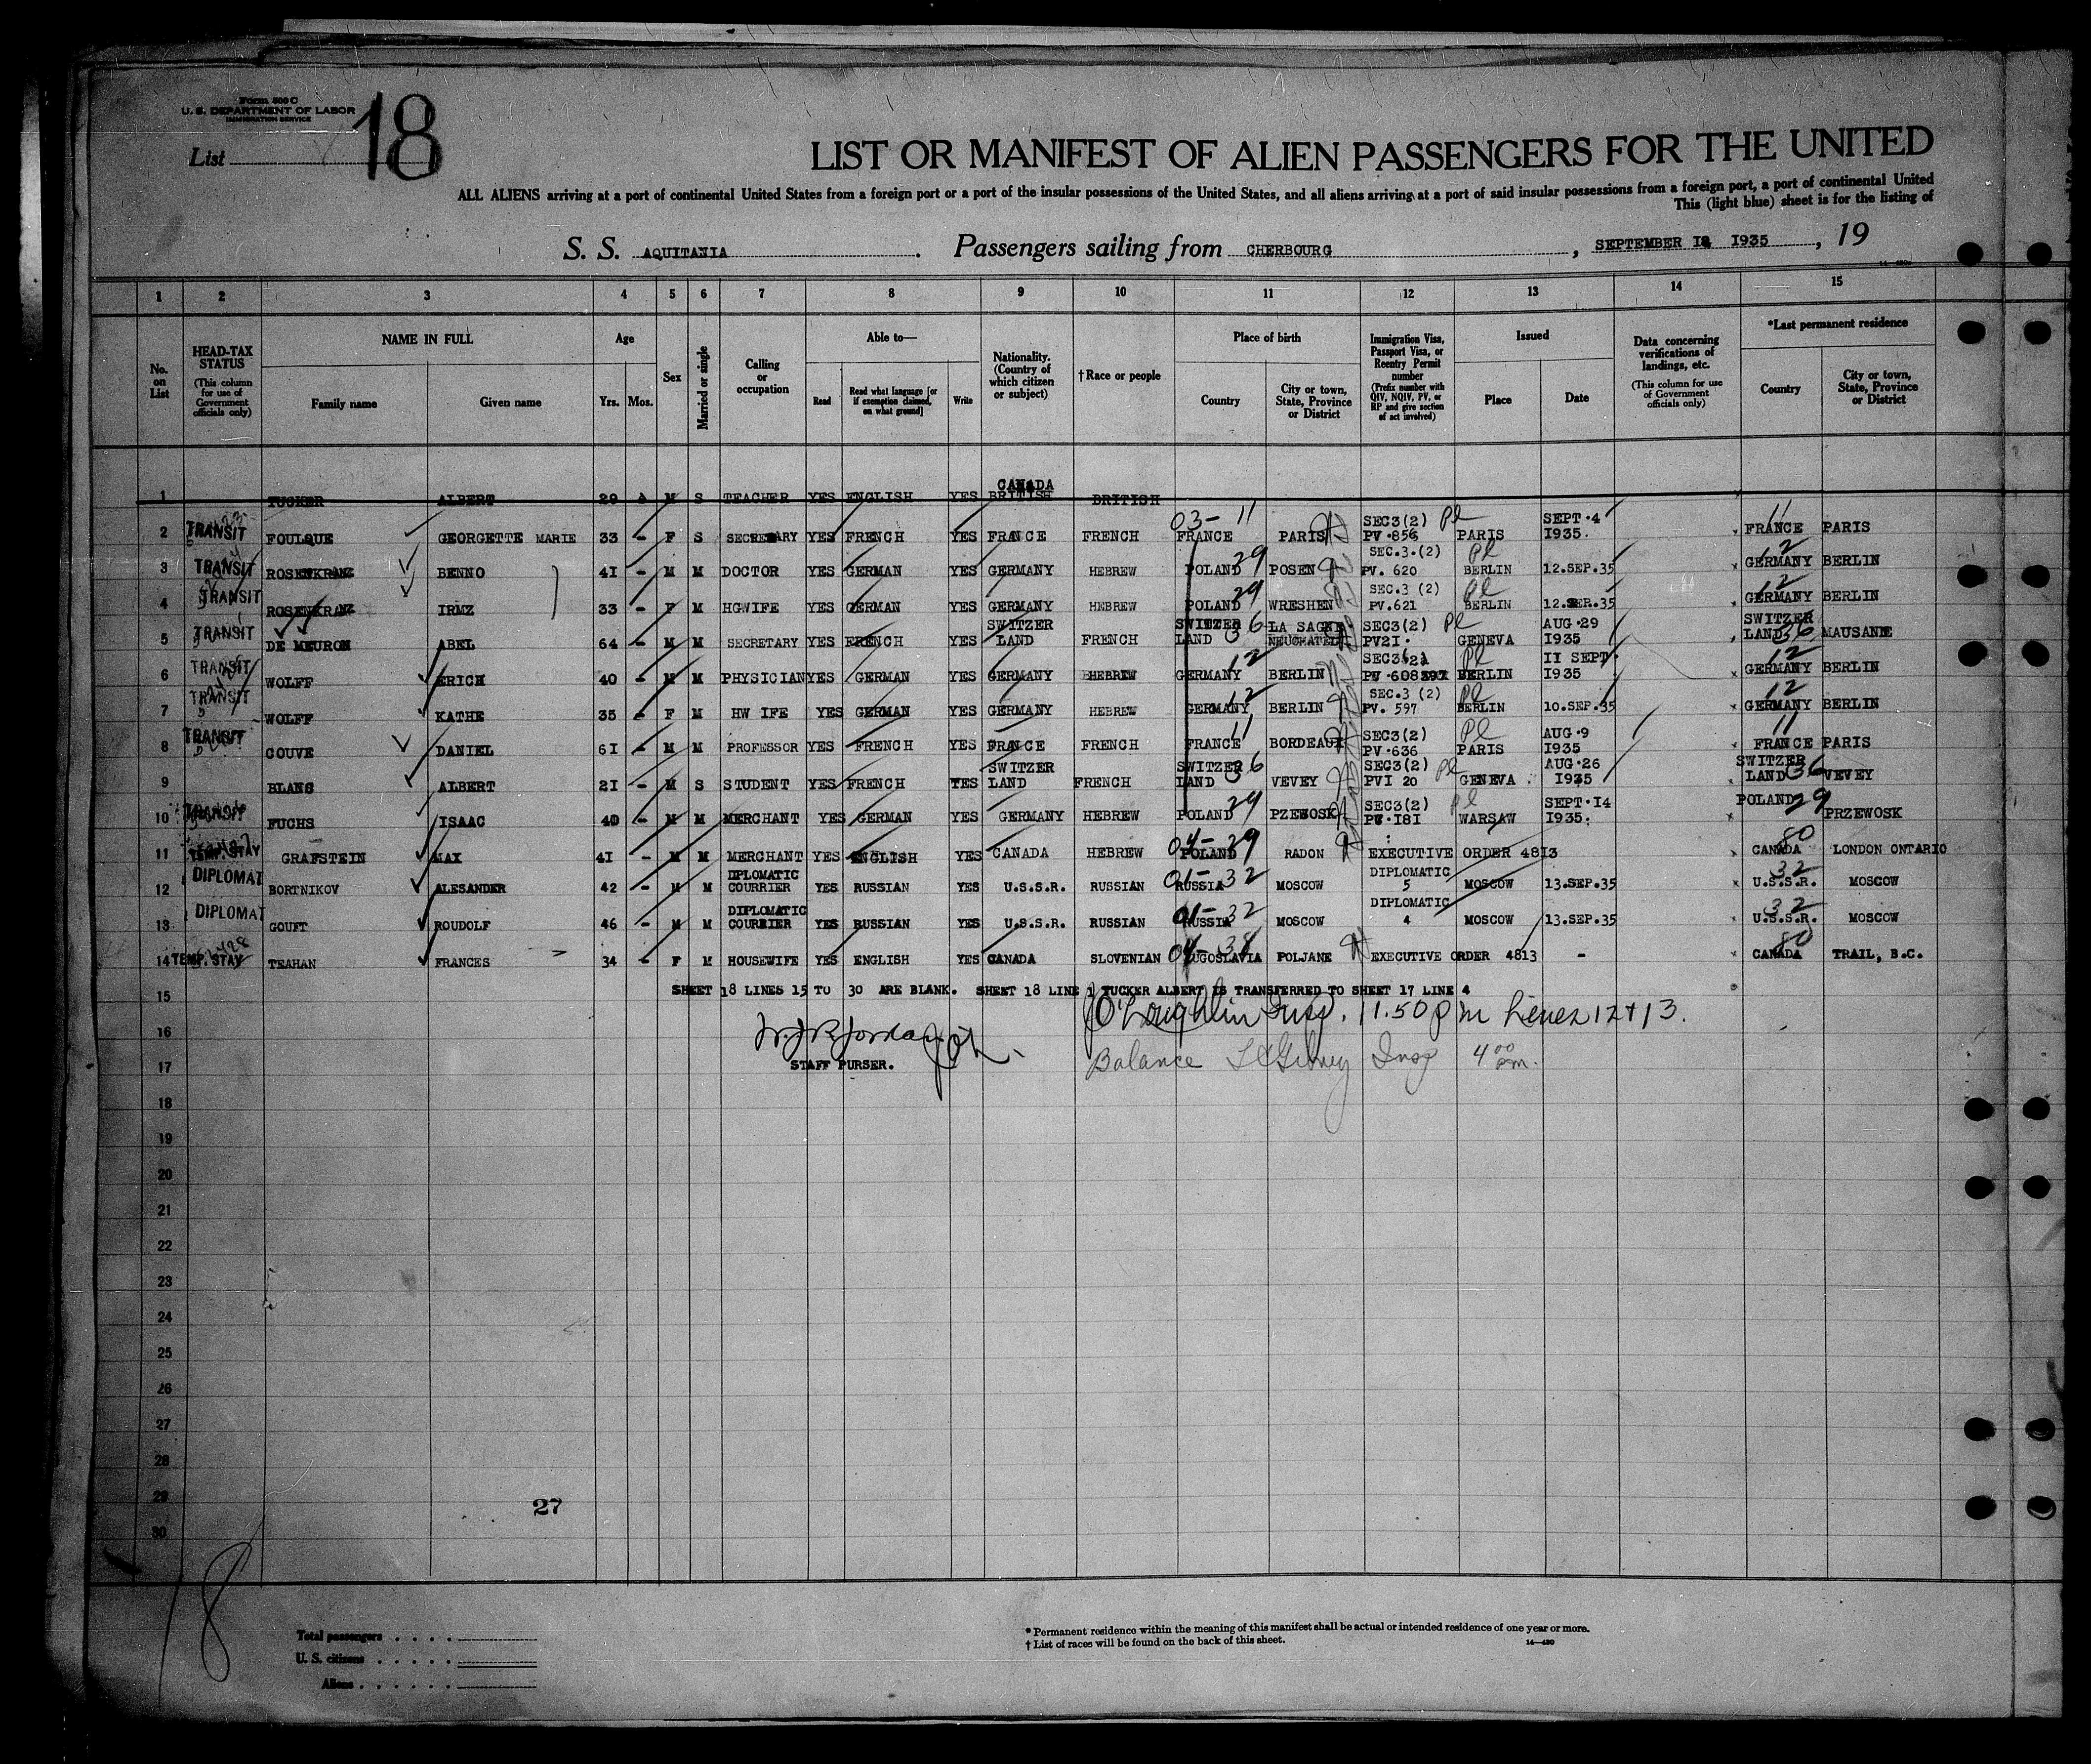 Form 500 C
U. S. DEPARTMENT OF LABOR
IMMIGRATION SERVICE
List 18
LIST OR MANIFEST OF ALIEN PASSENGERS FOR THE UNITED
ALL ALIENS arriving at a port of continental United States from a foreign port or a port of the insular possessions of the United States, and all aliens arriving at a port of said insular possessions from a foreign port, a port of continental United
This (light blue) sheet is for the listing of
S. S. AQUITANIA. Passengers sailing from CHERBOURG, SEPTEMBER 18, 1935, 19
1 2 3 4 5 6 7 8 9 10 11 12 13 14 15
No. on List
HEAD-TAX STATUS (This column for use of Government officials only)
NAME IN FULL Family name Given name
Age Yrs. Mos.
Sex
Married or single
Calling or occupation
Able to— Read Read what language [or if exemption claimed, on what ground] Write
Nationality. (Country of which citizen or subject)
†Race or people
Place of birth Country City or town, State, Province or District
Immigration Visa, Passport Visa, or Reentry Permit number (Prefix number with QIV, NQIV, PV, or RP and give section of act involved)
Issued Place Date
Data concerning verifications of landings, etc. (This column for use of Government officials only)
*Last permanent residence Country City or town, State, Province or District
1 TUCKER ALBERT 29 M S TEACHER YES ENGLISH YES CANADA BRITISH BRITISH
2 TRANSIT FOULQUE GEORGETTE MARIE 33 - F S SECRETARY YES FRENCH YES FRANCE FRENCH 03- 11 FRANCE PARIS SEC3(2) PV.856 Pl PARIS SEPT.4 1935. 11 FRANCE PARIS
3 TRANSIT ROSENKRANZ BENNO 41 - M M DOCTOR YES GERMAN YES GERMANY HEBREW POLAND 29 POSEN SEC.3.(2) PV. 620 Pl BERLIN 12.SEP.35 12 GERMANY BERLIN
4 TRANSIT ROSENKRANZ IRMZ 33 - F M HGWIFE YES GERMAN YES GERMANY HEBREW POLAND 29 WRESHEN SEC.3 (2) PV.621 Pl BERLIN 12.SEP.35 12 GERMANY BERLIN
5 TRANSIT DE MEURON ABEL 64 - M M SECRETARY YES FRENCH YES SWITZER LAND FRENCH SWITZER LAND 36 LA SAGNE NEUCHATEL SEC3(2) PV21. Pl GENEVA AUG.29 1935 SWITZER LAND 36 MAUSANNE
6 TRANSIT WOLFF ERICH 40 - M M PHYSICIAN YES GERMAN YES GERMANY HEBREW GERMANY 12 BERLIN SEC3(2) PV.608 Pl BERLIN 11 SEPT. 1935 12 GERMANY BERLIN
7 TRANSIT WOLFF KATHE 35 - F M HW IFE YES GERMAN YES GERMANY HEBREW GERMANY 12 BERLIN SEC.3 (2) PV. 597 Pl BERLIN 10.SEP.35 12 GERMANY BERLIN
8 TRANSIT COUVE DANIEL 61 - M M PROFESSOR YES FRENCH YES FRANCE FRENCH FRANCE 11 BORDEAUX SEC3(2) PV.636 Pl PARIS AUG.9 1935 11 FRANCE PARIS
9 BLANS ALBERT 21 - M S STUDENT YES FRENCH YES SWITZER LAND FRENCH SWITZER LAND 36 VEVEY SEC3(2) PVI 20 Pl GENEVA AUG.26 1935 SWITZER LAND 36 VEVEY
10 TRANSIT FUCHS ISAAC 40 - M M MERCHANT YES GERMAN YES GERMANY HEBREW POLAND 29 PZEWOSK SEC3(2) PV.181 Pl WARSAW SEPT.14 1935. POLAND 29 PRZEWOSK
11 TEMP. STAY GRAFSTEIN MAX 41 - M M MERCHANT YES ENGLISH YES CANADA HEBREW 04- 29 POLAND RADON EXECUTIVE ORDER 4813 80 CANADA LONDON ONTARIO
12 DIPLOMAT BORTNIKOV ALESANDER 42 - M M DIPLOMATIC COURRIER YES RUSSIAN YES U.S.S.R. RUSSIAN 01- 32 RUSSIA MOSCOW DIPLOMATIC 5 MOSCOW 13.SEP.35 32 U.S.S.R. MOSCOW
13 DIPLOMAT GOUFT ROUDOLF 46 - M M DIPLOMATIC COURRIER YES RUSSIAN YES U.S.S.R. RUSSIAN 01- 32 RUSSIA MOSCOW DIPLOMATIC 4 MOSCOW 13.SEP.35 32 U.S.S.R. MOSCOW
14 TEMP. STAY TEAHAN FRANCES 34 - F M HOUSEWIFE YES ENGLISH YES CANADA SLOVENIAN 04- 38 YUGOSLAVIA POLJANE EXECUTIVE ORDER 4813 - 80 CANADA TRAIL, B.C.
15 SHEET 18 LINES 15 TO 30 ARE BLANK. SHEET 18 LINE 1 TUCKER ALBERT IS TRANSFERRED TO SHEET 17 LINE 4
16 O'Loughlin Insp. 11.50 pm Lines 12 + 13.
17 STAFF PURSER. Balance Insp 4 00 pm.
18
19
20
21
22
23
24
25
26
27
28
29
30
27
18
Total passengers
U. S. citizens
Aliens
* Permanent residence within the meaning of this manifest shall be actual or intended residence of one year or more.
† List of races will be found on the back of this sheet.
14—430